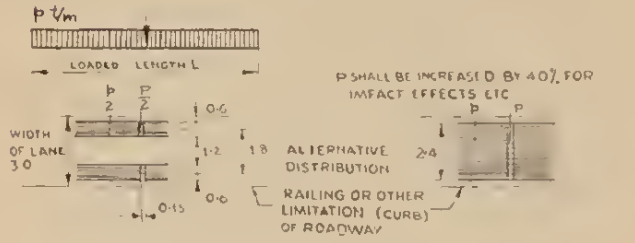 p t/m
LOADED LENGTH L
P SHALL BE INCREASED BY 40% FOR
IMPACT EFFECTS ETC
p/2 P/2
0.6
p P
WIDTH
OF LANE
3.0
1.2
1.8
ALTERNATIVE
DISTRIBUTION
2.4
0.6
RAILING OR OTHER
LIMITATION (CURB)
OF ROADWAY
0.15